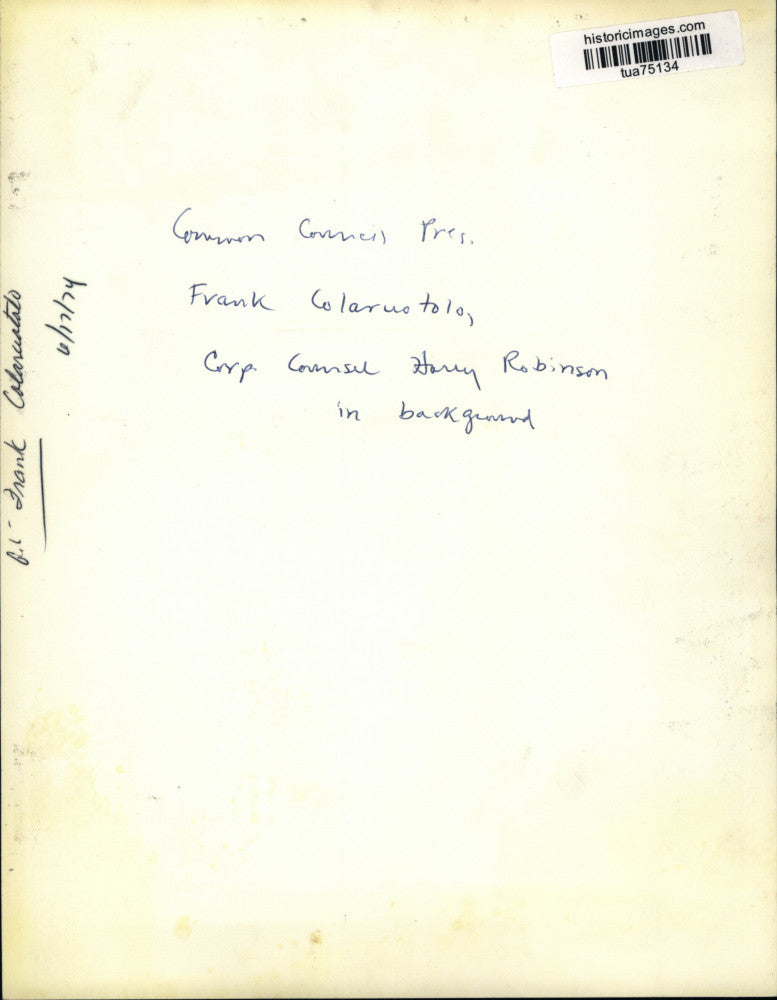 historicimages.com
tua75134
Common Council Pres.
Frank Colaruotolo,
Corp. Counsel Harry Robinson
in background
Frank Colaruotolo
6/17/74